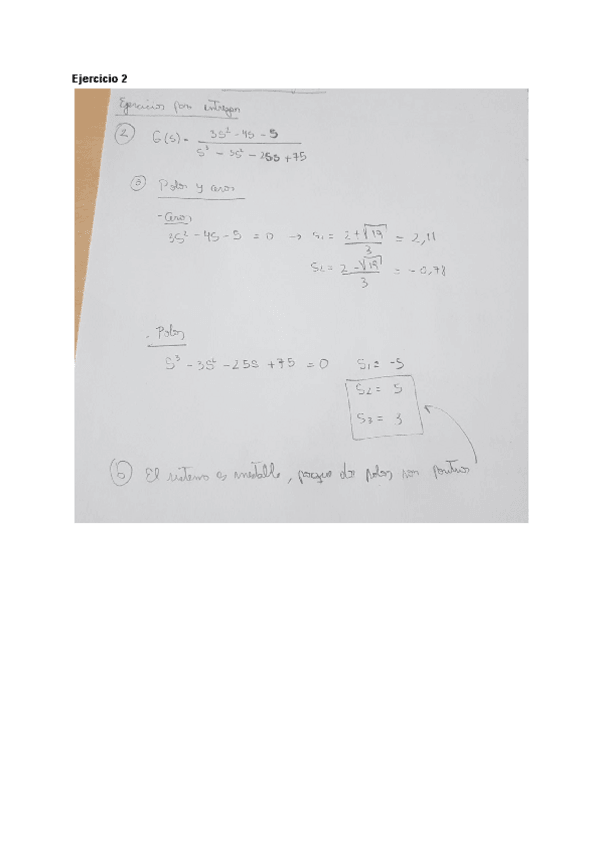 Ejercicio 2
Ejercicios para entregar
2 G(s) = 3s² - 4s - 5 / s³ - 3s² - 25s + 75
a Polos y ceros
- Ceros
3s² - 4s - 5 = 0 → s₁ = 2 + √19 / 3 = 2,11
s₂ = 2 - √19 / 3 = - 0,78
- Polos
s³ - 3s² - 25s + 75 = 0 s₁ = -5
s₂ = 5
s₃ = 3
b El sistema es inestable, porque dos polos son positivos